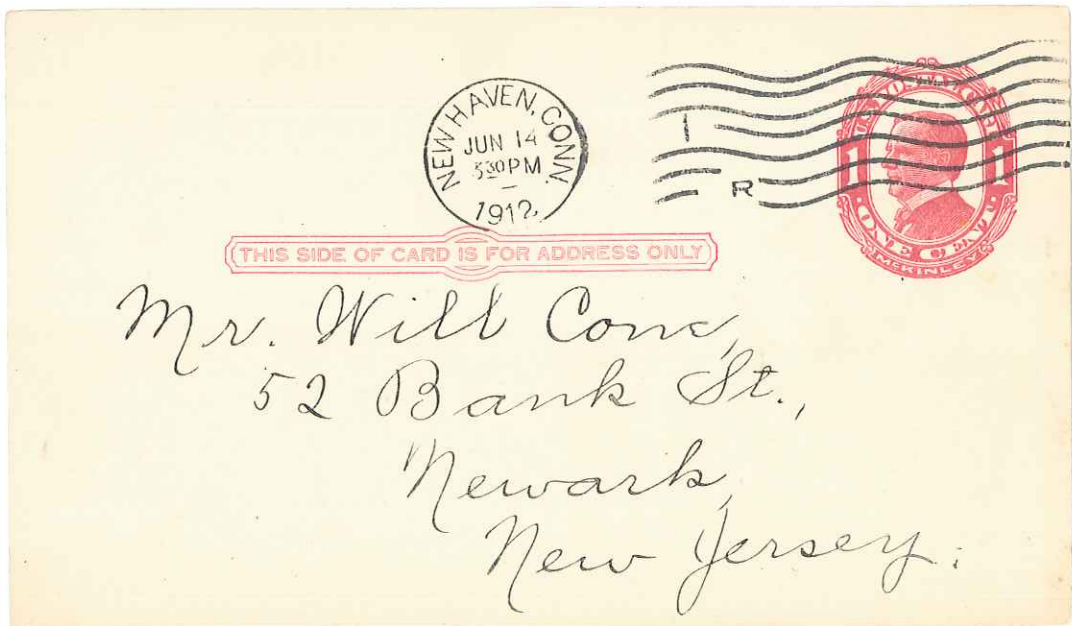 NEW HAVEN, CONN.
JUN 14
330 PM
1912
I
R
U.S. POSTAL CARD
1 1
ONE CENT
McKINLEY
THIS SIDE OF CARD IS FOR ADDRESS ONLY
Mr. Will Cone,
52 Bank St.,
Newark,
New Jersey.